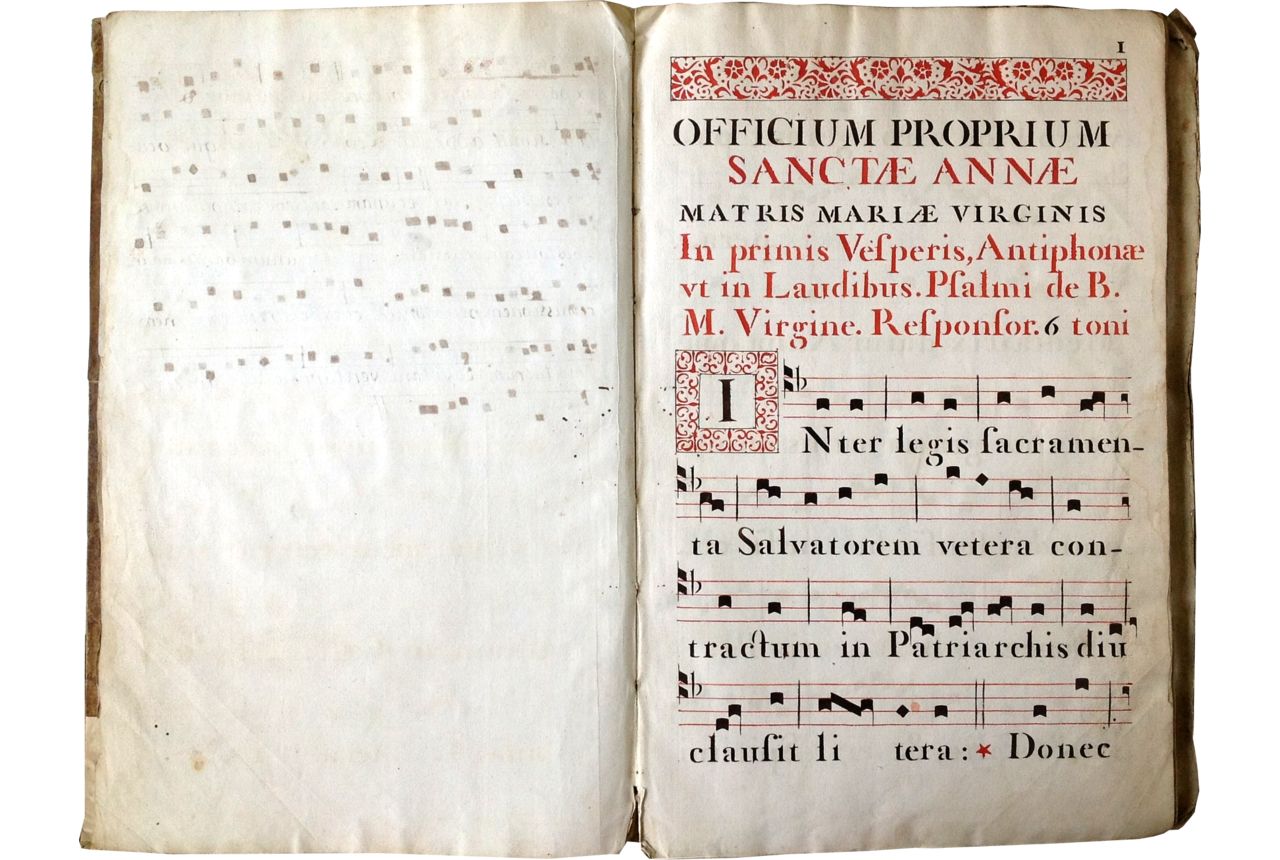 1
OFFICIUM PROPRIUM
SANCTÆ ANNÆ
MATRIS MARIÆ VIRGINIS
In primis Veſperis, Antiphonæ
vt in Laudibus. Pſalmi de B.
M. Virgine. Reſponſor. 6 toni
INter legis ſacramen-
ta Salvatorem vetera con-
tractum in Patriarchis diu
clauſit li tera: * Donec